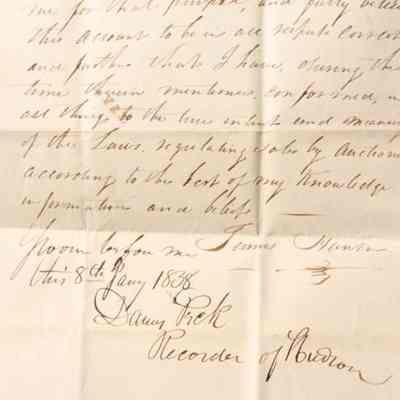 me for that purpose, and fully
this account to be in all respects correct
and further that I have, during the
time therein mentioned, conformed, in
all things to the true intent and meaning
of the Laws, regulating sales by Auction
according to the best of my knowledge
information and belief
Sworn before me James
this 8th Jany 1838
Darius Peck
Recorder of Hudson